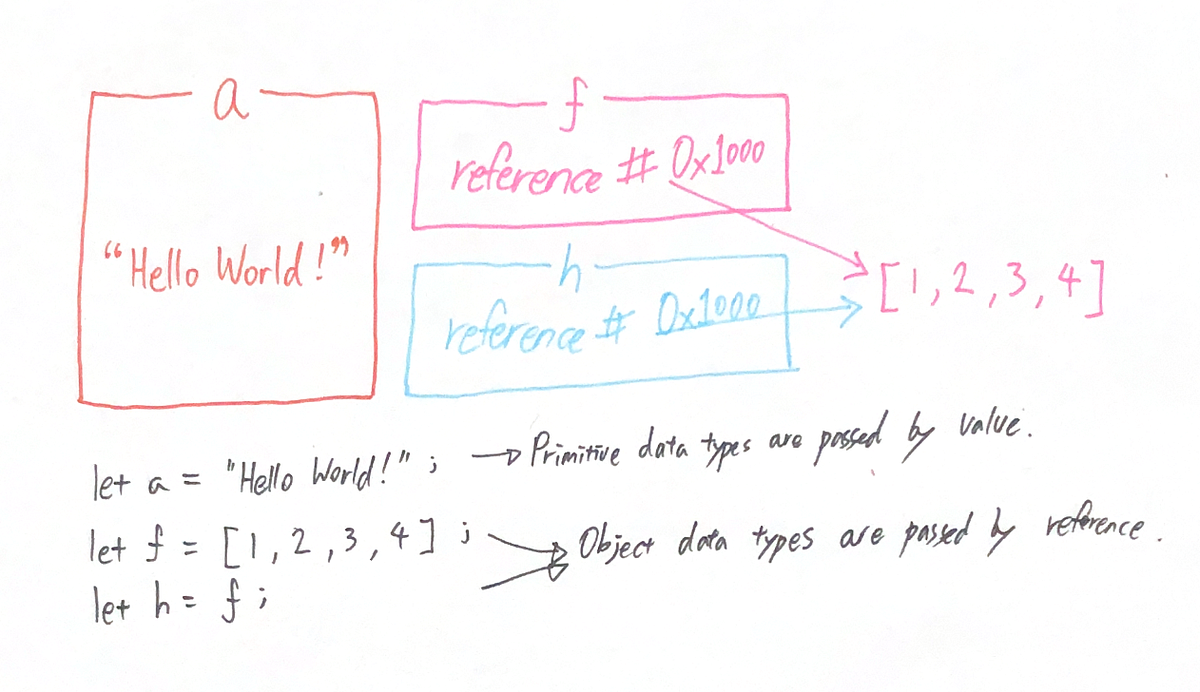 a
f
reference # 0x1000
"Hello World!"
h
reference # 0x1000
[1, 2, 3, 4]
let a = "Hello World!" ; → Primitive data types are passed by value.
let f = [1, 2, 3, 4] ; → Object data types are passed by reference.
let h = f ;